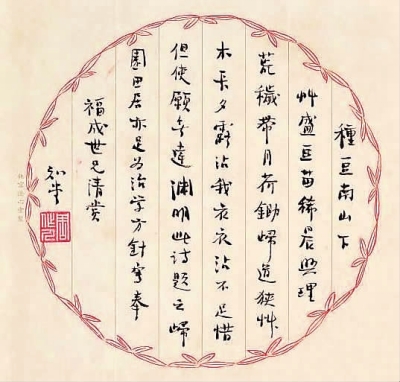 種豆南山下
艸盛豆苗稀晨興理
荒穢帶月荷鋤歸道狹艸
木長夕露沾我衣衣沾不足惜
但使願無違淵明此詩題云歸
園田居亦足为治学方針寫奉
福成世兄清賞
知堂